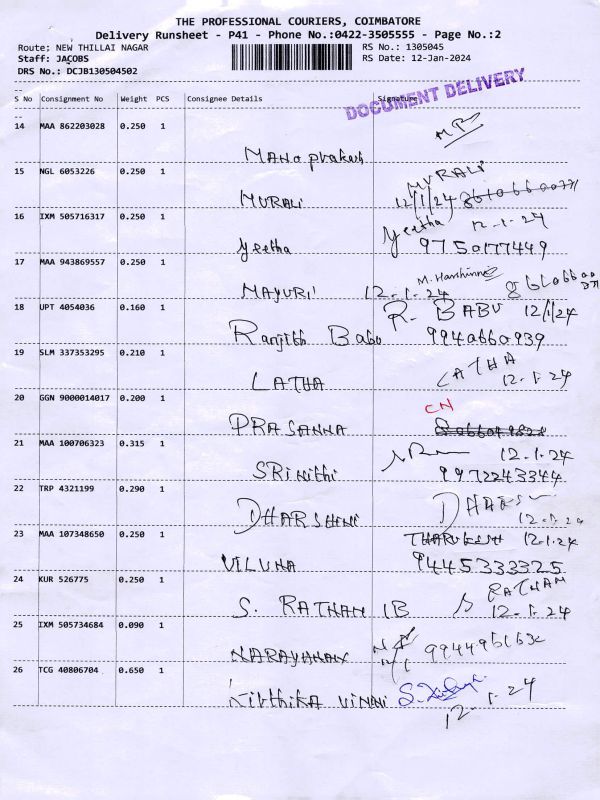 THE PROFESSIONAL COURIERS, COIMBATORE
Delivery Runsheet - P41 - Phone No.:0422-3505555 - Page No.:2
Route: NEW THILLAI NAGAR RS No.: 1305045
Staff: JACOBS RS Date: 12-Jan-2024
DRS No.: DCJB130504502
DOCUMENT DELIVERY
S No Consignment No Weight PCS Consignee Details Signature
14 MAA 862203028 0.250 1
Mano prakash
15 NGL 6053226 0.250 1
MURALI
MURALI 12/1/24
16 IXM 505716317 0.250 1
yeetha
yeetha 12-1-24
9750177449
17 MAA 943869557 0.250 1
MAYURI 12-1-24
18 UPT 4054036 0.160 1
R. BABU 12/1/24
Ranjith Babu 9940660939
19 SLM 337353295 0.210 1
LATHA
LATHA 12-1-24
20 GGN 9000014017 0.200 1
CN
PRASANNA
21 MAA 100706323 0.315 1
12.1.24
SRinithi 9972243344
22 TRP 4321199 0.290 1
DHARSHINI
12-1-24
23 MAA 107348650 0.250 1
12.1.24
VILUNA 9445333325
24 KUR 526775 0.250 1
RATHAN
S. RATHAN IB 12-1-24
25 IXM 505734684 0.090 1
NARAYANAN
26 TCG 40806704 0.650 1
12-1-24